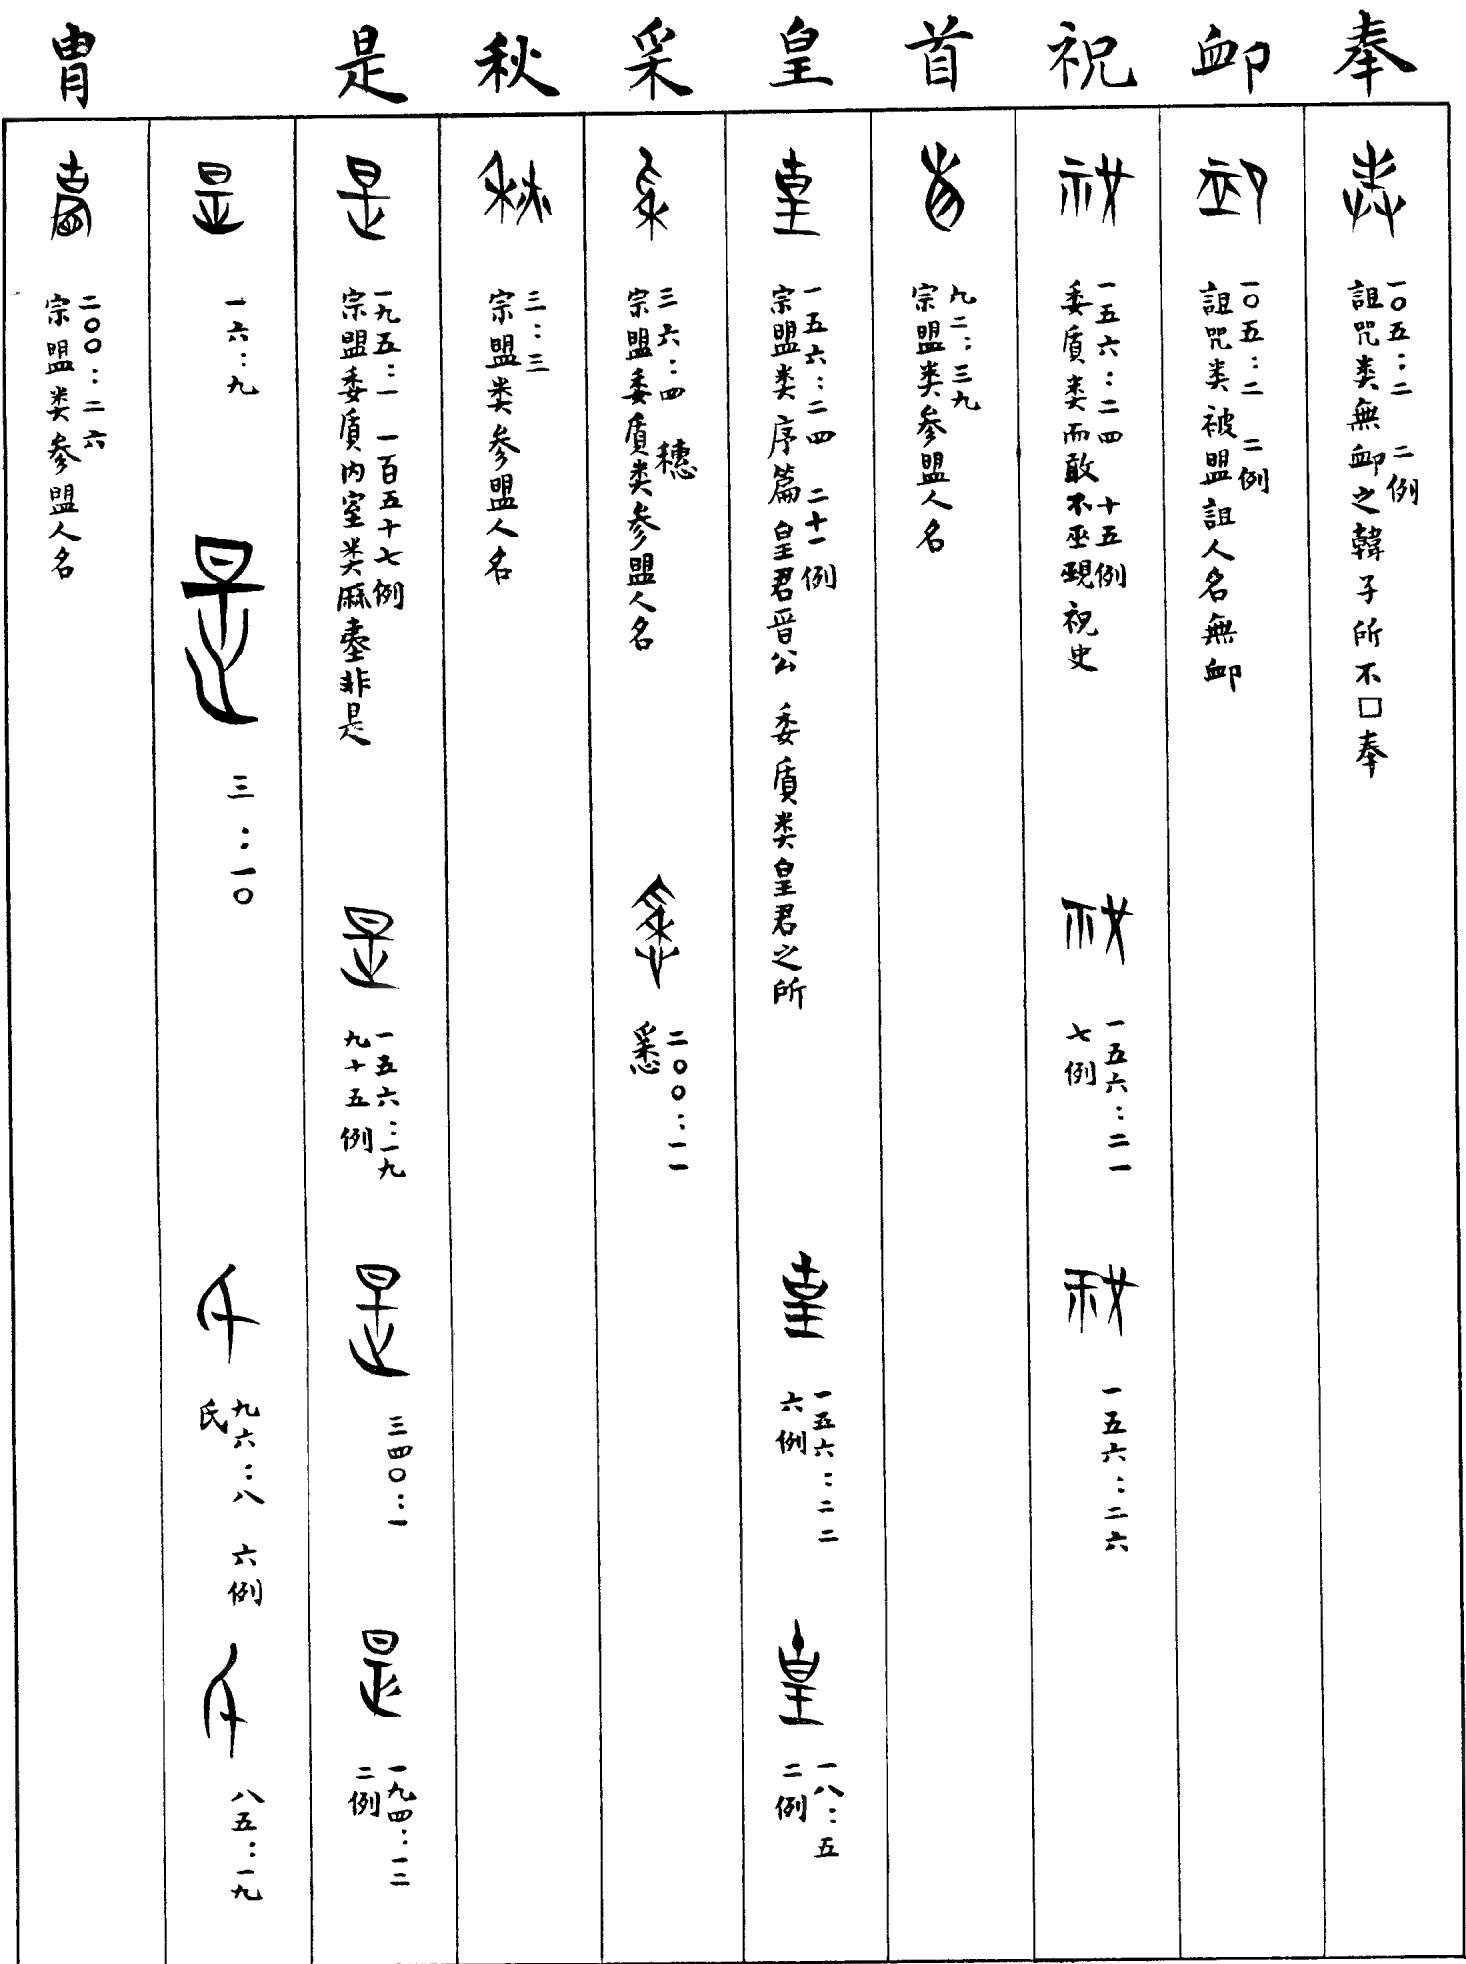 奉
一〇五：二 二例
詛咒类無卹之韓子所不□奉
卹
一〇五：二 二例
詛咒类被盟詛人名無卹
祝
一五六：二四 十五例
委质类而敢不巫覡祝史
一五六：二一
七例
一五六：二六
首
九二：三九
宗盟类参盟人名
皇
一五六：二四 二十一例
宗盟类序篇皇君晋公 委质类皇君之所
一五六：二二
六例
一八：五
二例
采
三六：四 穗
宗盟委质类参盟人名
二〇〇：一一
秋
三：三
宗盟类参盟人名
是
一九五：一 一百五十七例
宗盟委质内室类麻臺非是
一五六：一九
九十五例
三四〇：一
一九四：一二
二例
一六：九
三：一〇
九六：八 六例
氏
八五：一九
胄
二〇〇：二六
宗盟类参盟人名